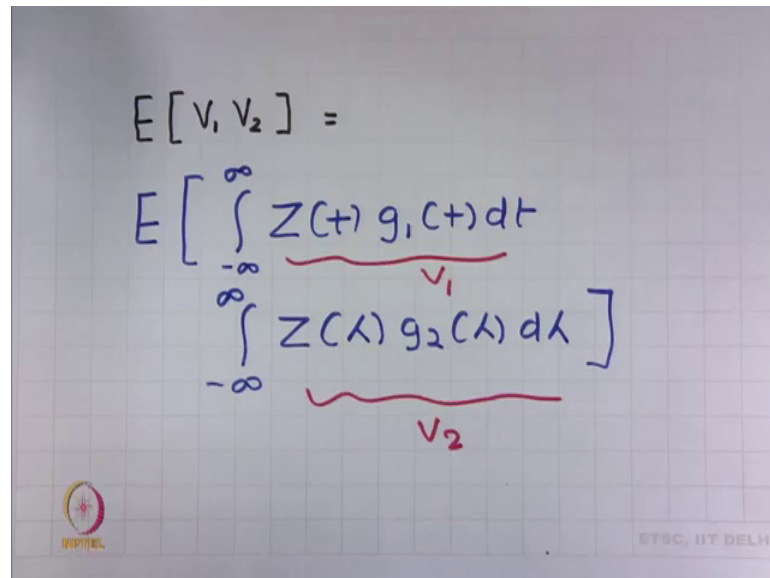 E[V₁ V₂] =
E[ ∫_{-∞}^{∞} Z(t) g₁(t) dt
V₁
∫_{-∞}^{∞} Z(λ) g₂(λ) dλ ]
V₂
NPTEL
ETSC, IIT DELH